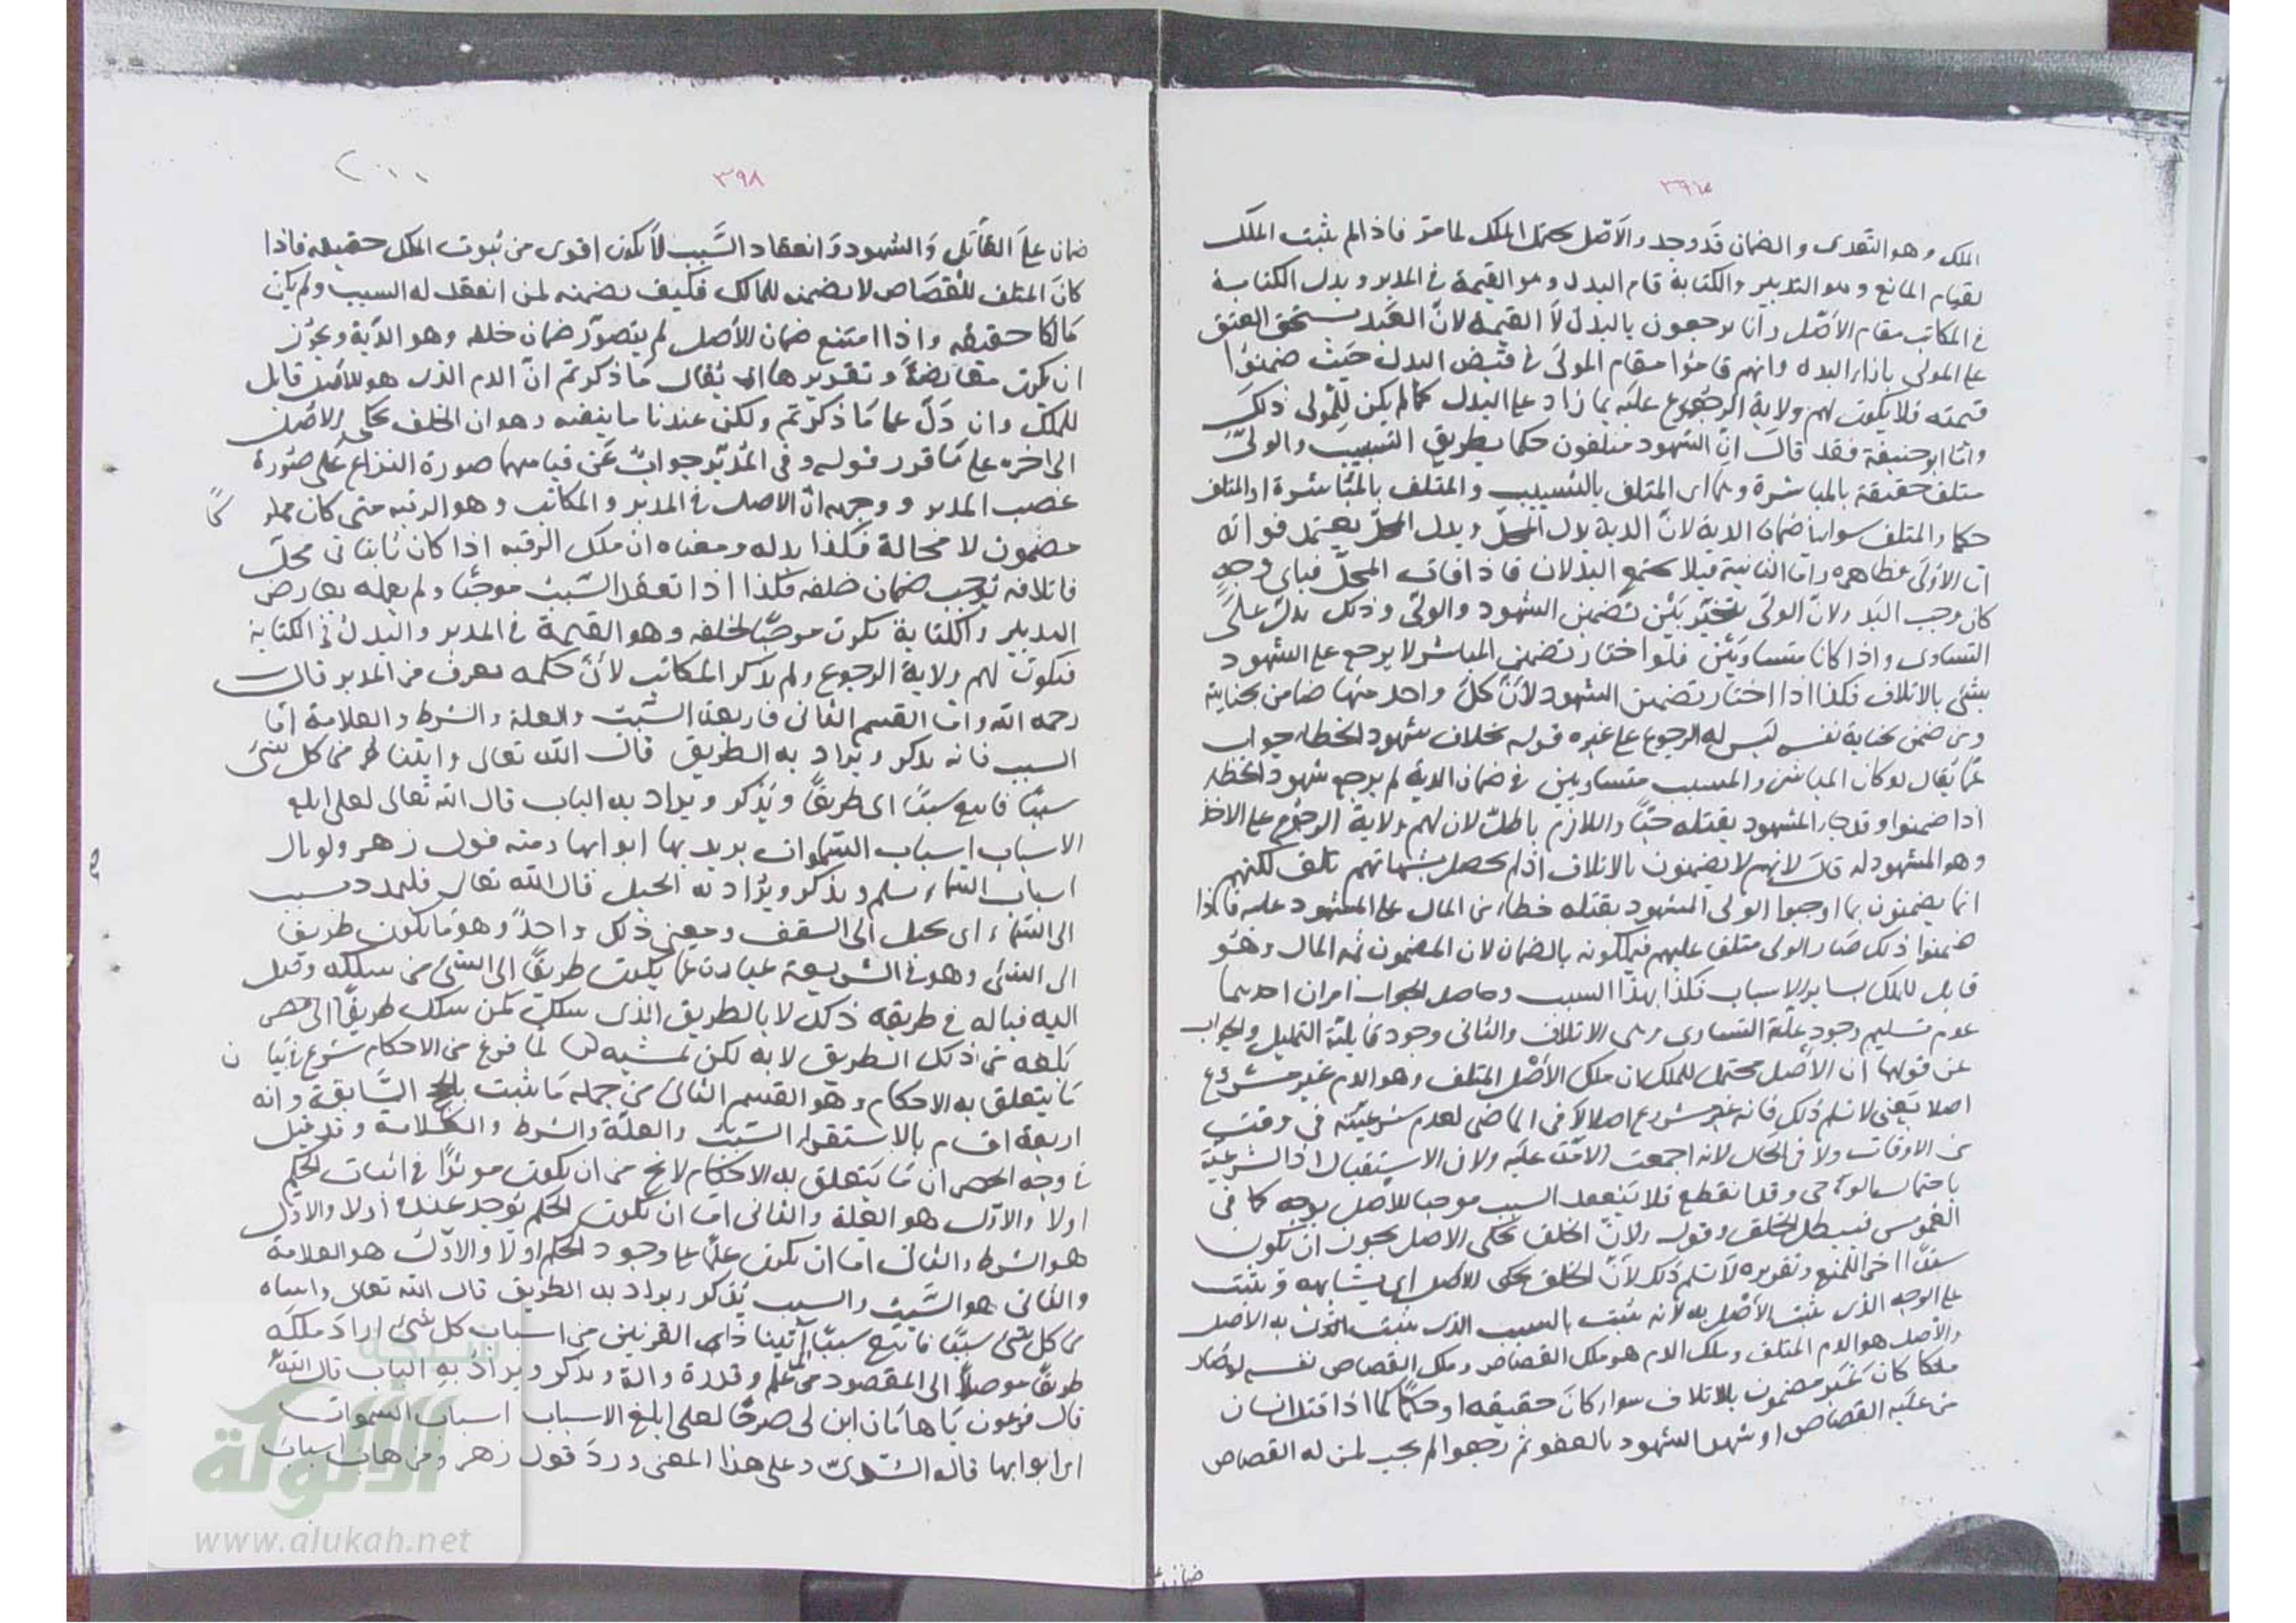 ٣٩٧
الملك وهو التعدى والضمان قد وجد والاصل يحتمل الملك لما مر فاذا لم يثبت الملك
لقيام المانع وهو التدبير والكتابة قام البدل وهو القيمة فى المدبر وبدل الكتابة
فى المكاتب مقام الاصل وانما يرجعون بالبدل لا القيمة لان العبد يستحق العتق
على المولى بازاء البدل وانهم قاموا مقام المولى فى قبض البدل حيث ضمنوا
قيمته فلا يكون لهم ولاية الرجوع عليه بما زاد على البدل كما لم يكن للمولى ذلك
واما ابو حنيفة فقد قال ان الشهود متلفون حكما بطريق التسبيب والولى
متلف حقيقة بالمباشرة وهما اى المتلف بالتسبيب والمتلف بالمباشرة او المتلف
حكما والمتلف سواء فى ضمان الدية لان الدية بدل المحل وبدل المحل يعتمد فواته
اما الاولى فظاهرة واما الثانية فلئلا يجتمع البدلان فاذا فات المحل فباى وجه
كان وجب البدل ولان الولى يتخير بين تضمين الشهود والولى وذلك يدل على
التساوى واذا كانا متساويين فلو اختار تضمين المباشر لا يرجع على الشهود
بشئ بالاتلاف فكذا اذا اختار تضمين الشهود لان كل واحد منهما ضامن بجنايته
ومن ضمن بجناية نفسه ليس له الرجوع على غيره قوله بخلاف شهود الخطاء جواب
عما يقال لو كان المباشر والمسبب متساويين فى ضمان الدية لم يرجع شهود الخطاء
اذا ضمنوا وقد جاء المشهود بقتله حيا واللازم باطل لان لهم ولاية الرجوع على الاخذ
وهو المشهود له قال لانهم لا يضمنون بالاتلاف اذ لم يحصل بشهادتهم تلف لكنهم
انما يضمنون بما اوجبوا للولى المشهود بقتله خطاء من المال على المشهود عليه فاذا
ضمنوا ذلك صار الولى متلفا عليهم فيملكونه بالضمان لان المضمون ثمه المال وهو
قابل للملك بساير الاسباب فكذا بهذا السبب وحاصل الجواب امران احدهما
عدم تسليم وجود علة التساوى وهى الاتلاف والثانى وجود قابلية التمليك والجواب
عن قولهما ان الاصل محتمل للملك ان ملك الاصل المتلف وهو الدم غير مشروع
اصلا يعنى لا نسلم ذلك فانه غير مشروع اصلا لا فى الماضى لعدم شرعيته فى وقت
من الاوقات ولا فى الحال لانه اجمعت الامة عليه ولا فى الاستقبال اذ الشرعية
باحتمال الوحى وقد انقطع فلا ينعقد السبب موجبا للاصل بوجه كما فى
الغموس فيبطل الخلف وقوله ولان الخلف يحكى الاصل يجوز ان يكون
سندا اخر للمنع وتقريره لا نسلم ذلك لان الخلف يحكى الاصل اى يشابهه ويثبت
على الوجه الذى يثبت الاصل به لانه يثبت بالسبب الذى يثبت به الاصل
والاصل هو الدم المتلف وملك الدم هو ملك القصاص وملك القصاص نفسه لو صار
ملكا كان غير مضمون بالاتلاف سواء كان حقيقة او حكما كما اذا قتل انسان
من عليه القصاص او شهد الشهود بالعفو ثم رجعوا لم يجب لمن له القصاص
ضمان على
٣٩٨
ضمان على القاتل والشهود وانعقاد السبب لا يكون اقوى من ثبوت الملك حقيقة فاذا
كان المتلف للقصاص لا يضمنه للمالك فكيف يضمنه لمن انعقد له السبب ولم يكن
مالكا حقيقة واذا امتنع ضمان الاصل لم يتصور ضمان خلفه وهو الدية ويجوز
ان يكون معارضة وتقديرها ان يقال ما ذكرتم ان الدم الذى هو الاصل قابل
للملك وان دل على ما ذكرتم ولكن عندنا ما ينفيه وهو ان الخلف يحكى الاصل
الى اخره على ما قرر قوله وفى المدبر جواب عن قياسهما صورة النزاع على صورة
غصب المدبر ووجهه ان الاصل فى المدبر والمكاتب وهو الرقبة متى كان مملوكا
مضمون لا محالة فكذا بدله ومعناه ان ملك الرقبة اذا كان ثابتا فى محل
فاتلافه يوجب ضمان خلفه فكذا اذا تعقد السبب موجبا ولم يعمله بعارض
التدبير والكتابة يكون موجبا لخلفه وهو القيمة فى المدبر والبدل فى الكتابة
فيكون لهم ولاية الرجوع ولم يذكر المكاتب لان حكمه يعرف من المدبر قال
رحمه الله واما القسم الثانى فاربعة السبب والعلة والشرط والعلامة اما
السبب فانه يذكر ويراد به الطريق قال الله تعالى واتيناه من كل شئ
سببا فاتبع سببا اى طريقا ويذكر ويراد به الباب قال الله تعالى لعلى ابلغ
الاسباب اسباب السموات يريد بها ابوابها ومنه قول زهير ولو نال
اسباب السماء بسلم ويذكر ويراد به الحبل قال الله تعالى فليمدد بسبب
الى السماء اى بحبل الى السقف ومعنى ذلك واحد وهو ما يكون طريقا
الى الشئ وهو فى الشريعة عبارة عما يكون طريقا الى الشئ من سلكه وصل
اليه فناله فى طريقه ذلك لا بالطريق الذى سلك كمن سلك طريقا الى مصر
بلغه من ذلك الطريق لا به لكن بمشيه لما فرغ من الاحكام شرع فى بيان
ما يتعلق به الاحكام وهو القسم الثانى من جملة ما يثبت بالحجج السابقة وانه
اربعة اقسام بالاستقراء السبب والعلة والشرط والعلامة وقد قيل
فى وجه الحصر ان ما يتعلق به الاحكام لا يخ من ان يكون موثرا فى اثبات الحكم
اولا والاول هو العلة والثانى اما ان يكون الحكم يوجد عنده اولا والاول
هو الشرط والثانى اما ان يكون علما على وجود الحكم اولا والاول هو العلامة
والثانى هو السبب والسبب يذكر ويراد به الطريق قال الله تعالى واتيناه
من كل شئ سببا فاتبع سببا اى آتينا ذا القرنين من اسباب كل شئ اراد ملكه
طريقا موصلا الى المقصود من علم وقدرة والة ويذكر ويراد به الباب قال الله
قال فرعون يا هامان ابن لى صرحا لعلى ابلغ الاسباب اسباب السموات
اى ابوابها قاله السدى وعلى هذا المعنى ورد قول زهير ومن هاب اسباب
الألوكة
www.alukah.net